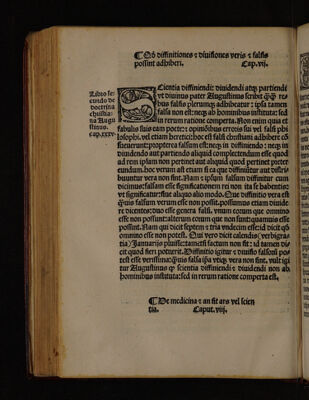 ¶Qđ diffinitiones ⁊ diuisiones veris ⁊ falsis
possint adhiberi. Cap.vij.
Libro secundo
de doctrina
christiana
Augustinus.
cap.xxxv.
SCientia diffiniendi: diuidendi atqʒ partiendi
vt diuinus pater Augustinus scribit qʒqʒ rebus
falsis plerumqʒ adhibeatur: ipsa tamen
falsa non est: neqʒ ab hominibus instituta: sed
in rerum ratione comperta. Non enim quia et
fabulis suis eam poete: ⁊ opinionibus erroris sui vel falsi philosophi.
vel etiam heretici: hoc est falsi christiani adhibere
consueuerunt: propterea falsum est: neqʒ in diffiniendo: neqʒ in
diuidendo aut partiendo aliquid complectendum esse quod
ad rem ipsam non pertinet aut aliquid quod pertinet pretereundum.
hoc verum est etiam si ea que diffiniuntur aut distribuuntur
vera non sint. Nam ⁊ ipsum falsum diffinitur cum
dicimus: falsam esse significationem rei non ita se habentis:
vt significatur: siue aliquo alio modo. Que diffinitio vera est
qʒuis falsum verum esse non possit. possumus etiam diuidere
dicentes: duo esse genera falsi. vnum eorum que omnino
esse non possunt: alterum eorum que non sunt: quamuis esse
possint. Nam qui dicit septem ⁊ tria vndecim esse: id dicit qđ
omnino esse non potest. Qui vero dicit calendis (verbigratia)
Januarijs pluisse: tametsi factum non sit: id tamen dicit
quod fieri potuerit. Diffinitio igitur ⁊ diuisio falsorum potest
esse verissima: qʒuis falsa ipsa vtiqʒ vera non sint. vult igitur
Augustinus qʒ scientia diffiniendi ⁊ diuidendi non ab
hominibus instituta: sed in rerum ratione comperta est.
¶De medicina ⁊ an sit ars vel scientia.
Caput.viij.